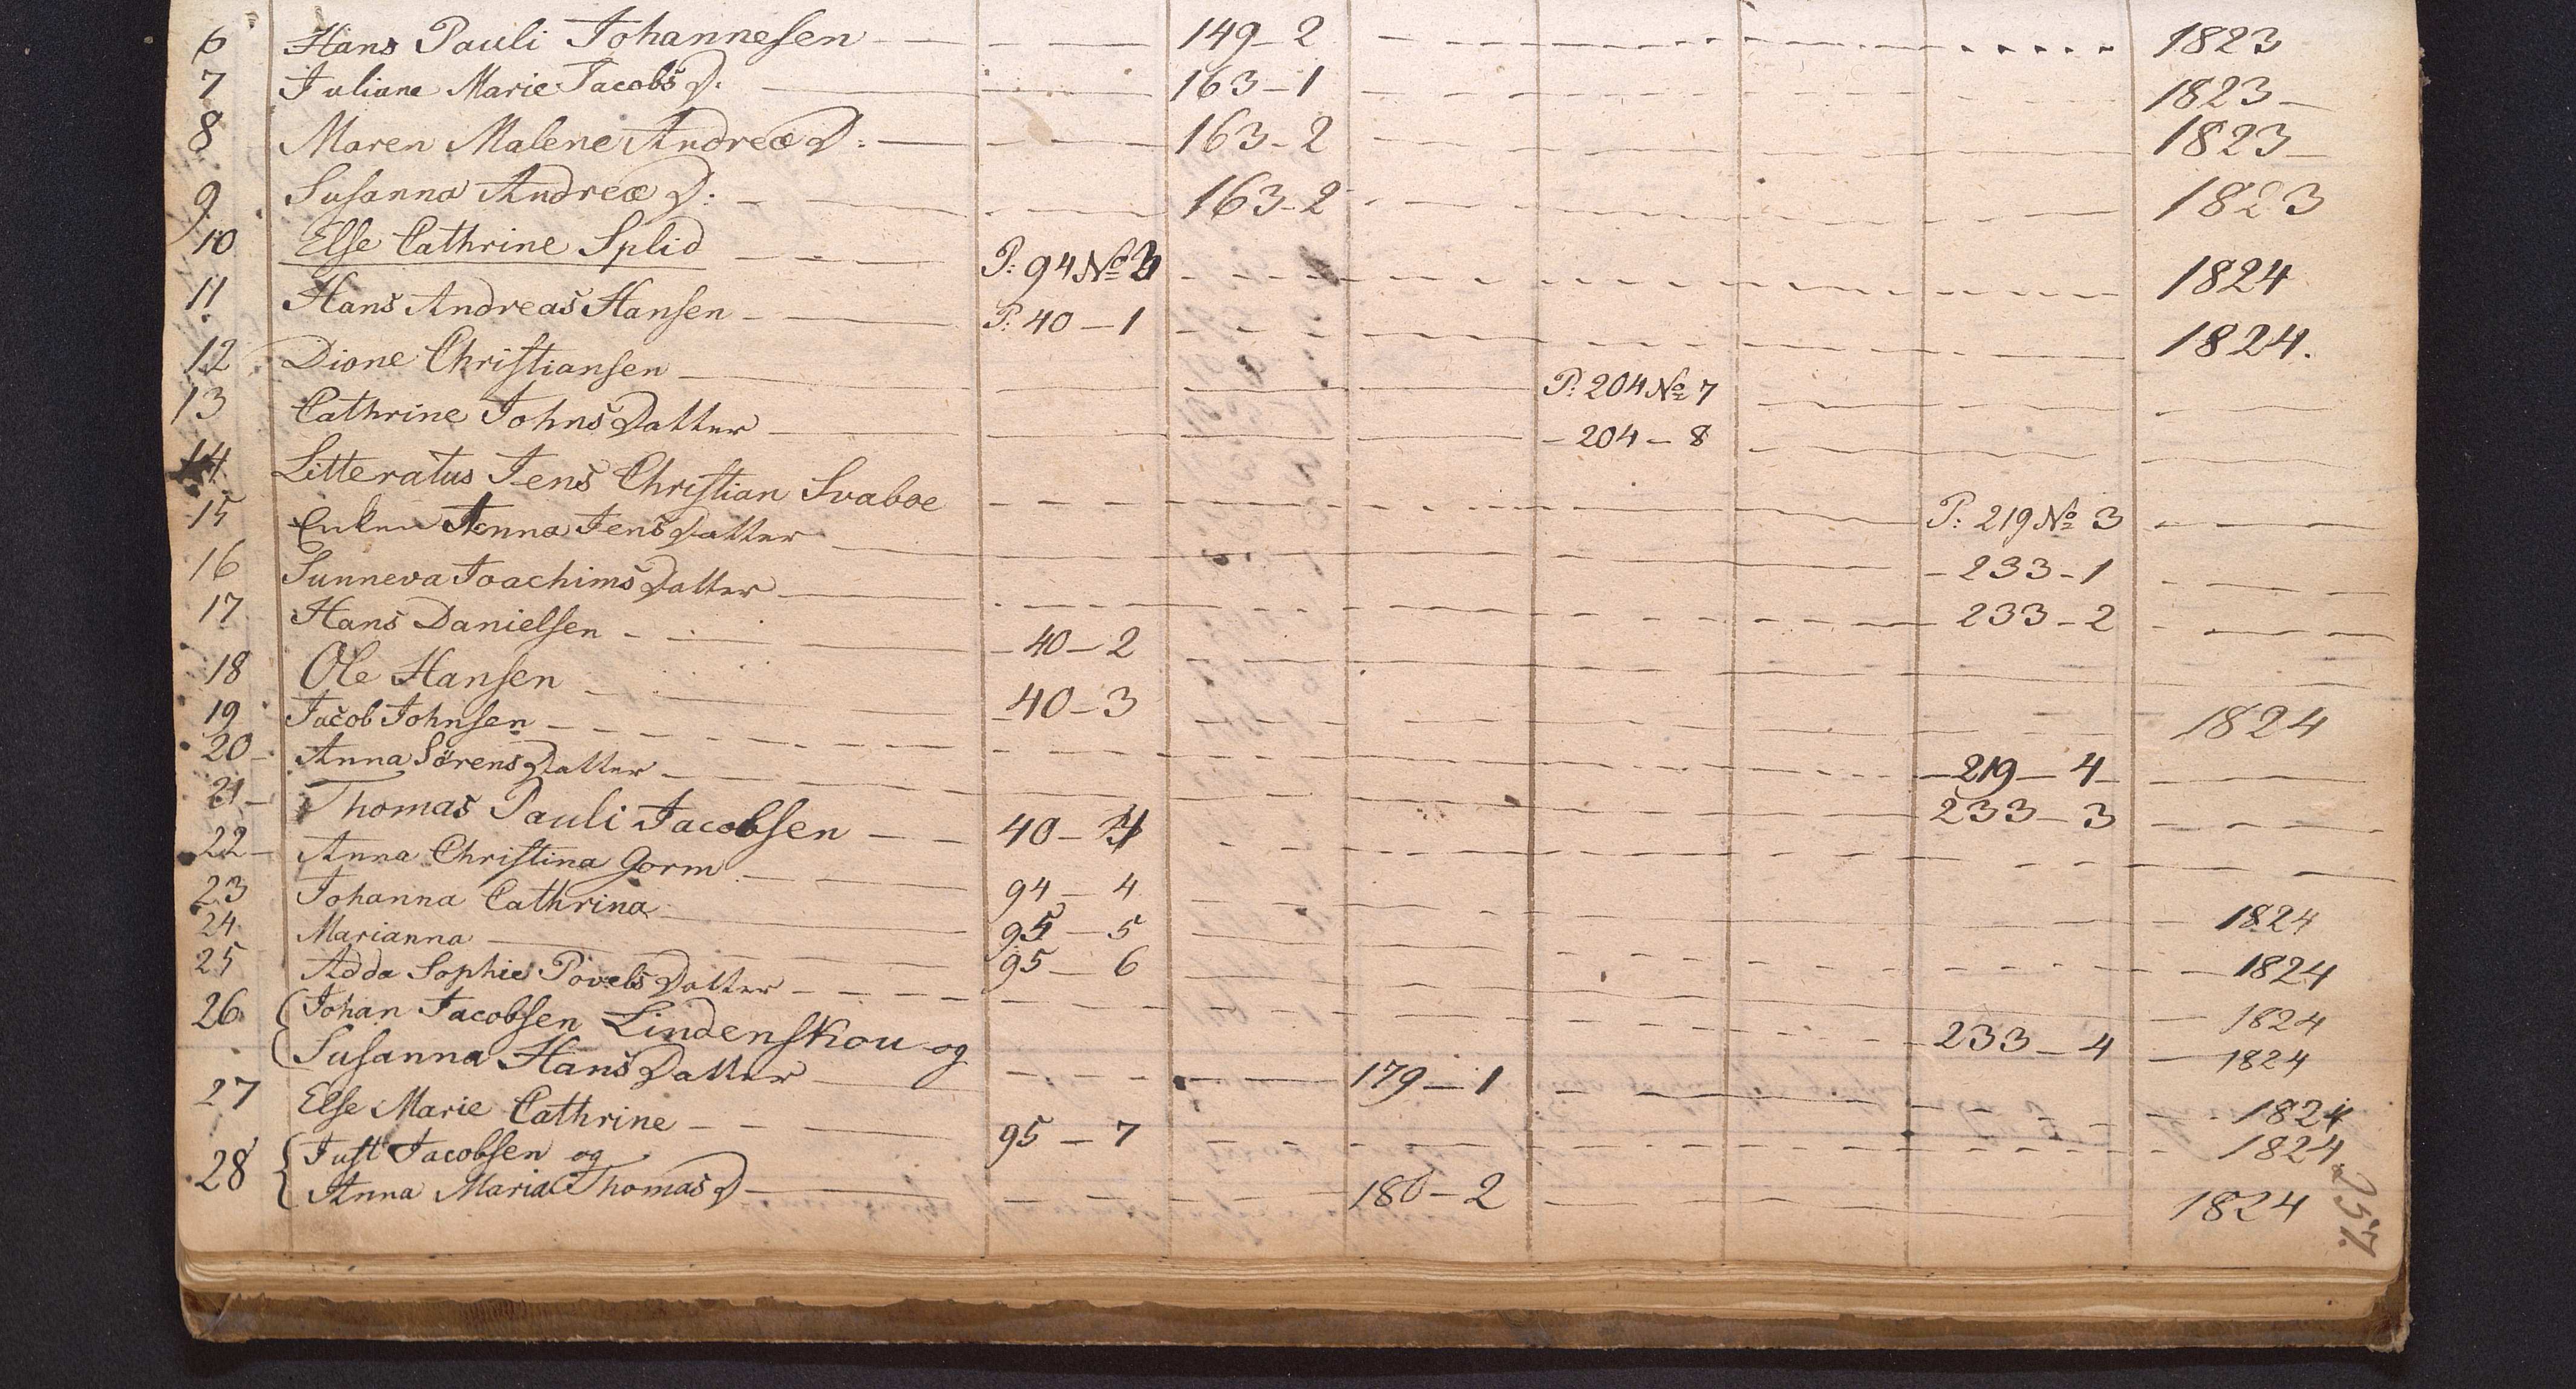 6 Hans Pauli Johannesen 149-2 1823
7 Juliane Marie Jacobs D: 163-1 1823
8 Maren Malene Andreæ D: 163-2 1823
9 Susanna Andreæ D: 163-2 1823
10 Else Cathrine Splid P: 94 No 3 1824
11 Hans Andreas Hansen P: 40-1 1824.
12 Dione Christiansen P: 204 No 7
13 Cathrine Johns Datter 204-8
14 Litteratus Jens Christian Svaboe P: 219 No 3
15 Enken Anna Jens Datter 233-1
16 Sunneva Joachims Datter 233-2
17 Hans Danielsen 40-2
18 Ole Hansen 40-3 1824
19 Jacob Johnsen 219-4
20 Anna Sörens Datter 233-3
21 Thomas Pauli Jacobsen 40-4
22 Anna Christina Gorm 94-4 1824
23 Johanna Cathrina 95-5 1824
24 Marianna 95-6 1824
25 Adda Sophie Povels Datter 233-4 1824
26 Johan Jacobsen Lindenskou og
Susanna Hans Datter 179-1 1824
27 Else Marie Cathrine 95-7 1824
28 Just Jacobsen og
Anna Maria Thomas D 180-2 1824
257.